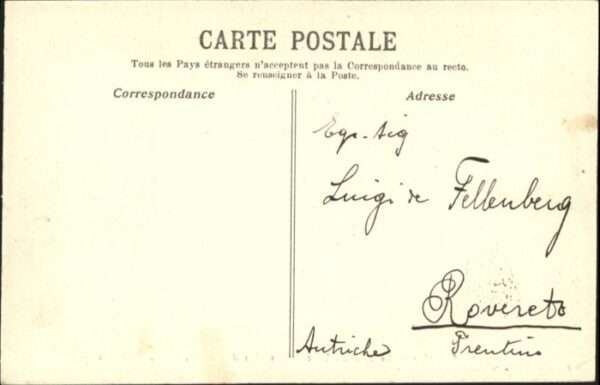 CARTE POSTALE
Tous les Pays étrangers n'acceptent pas la Correspondance au recto.
Se renseigner à la Poste.
Correspondance
Adresse
Egr. Sig
Luigi de Fellenberg
Rovereto
Autriche Trentino